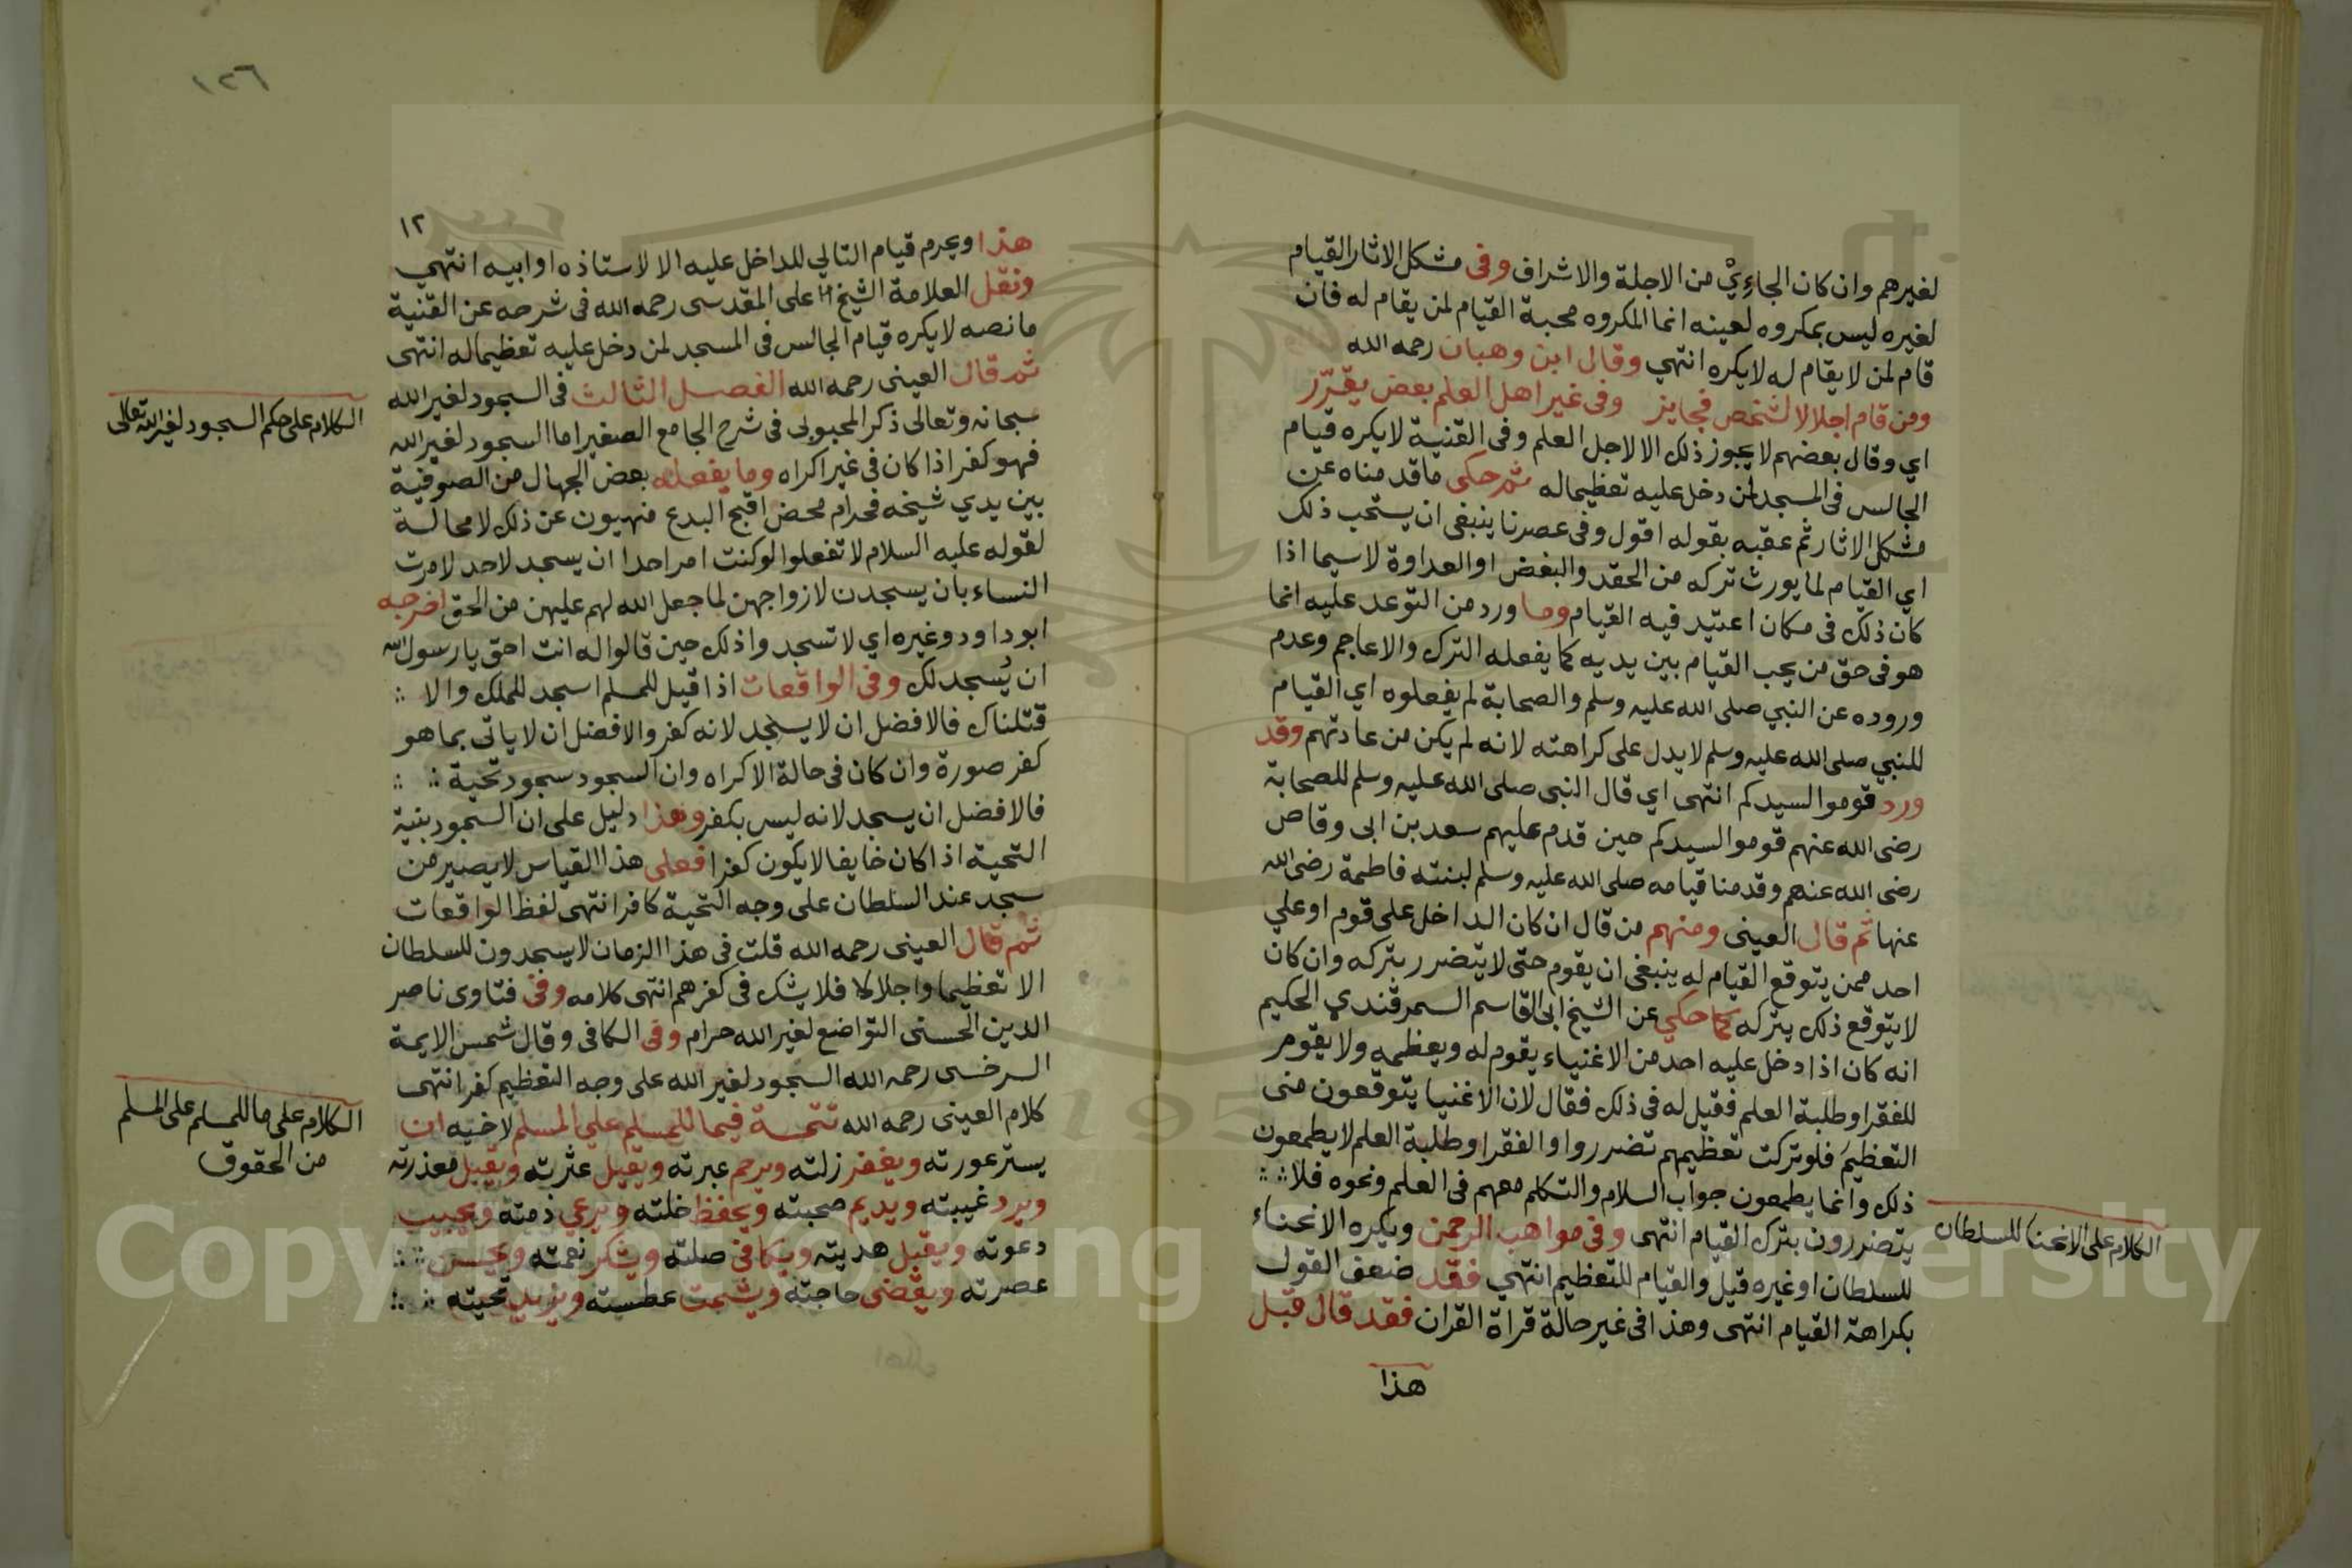 لغيرهم وان كان الجاءِيْ من الاجلة والاشراف وفى مشكل الاثار القيام
لغيره ليس بمكروه لعينه انما المكروه محبة القيام لمن يقام له فان
قام لمن لا يقام له لا يكره انتهي وقال ابن وهبان رحمه الله
ومن قام اجلالا لشخص فجايز وفى غير اهل العلم بعض يقرّر
اي وقال بعضهم لا يجوز ذلك الا لاجل العلم وفى القنية لا يكره قيام
الجالس فى المسجد لمن دخل عليه تعظيما له ثم حكى ما قدمناه عن
مشكل الاثار ثم عقبه بقوله اقول وفى عصرنا ينبغى ان يستحب ذلك
اي القيام لما يورث تركه من الحقد والبغض او العداوة لاسيما اذا
كان ذلك فى مكان اعتيد فيه القيام وما ورد من التوعد عليه انما
هو فى حق من يحب القيام بين يديه كما يفعله الترك والاعاجم وعدم
وروده عن النبي صلى الله عليه وسلم والصحابة لم يفعلوه اي القيام
للنبي صلى الله عليه وسلم لا يدل على كراهته لانه لم يكن من عادتهم وقد
ورد قوموا لسيدكم انتهى اي قال النبى صلى الله عليه وسلم للصحابة
رضى الله عنهم قوموا لسيدكم حين قدم عليهم سعد بن ابى وقاص
رضى الله عنهم وقدمنا قيامه صلى الله عليه وسلم لبنته فاطمة رضى الله
عنها ثم قال العينى ومنهم من قال ان كان الداخل على قوم او علي
احد ممن يتوقع القيام له ينبغى ان يقوم حتى لا يتضرر بتركه وان كان
لا يتوقع ذلك يتركه كما حكي عن الشيخ ابى القاسم السمرقندي الحكيم
انه كان اذا دخل عليه احد من الاغنياء يقوم له ويعظمه ولا يقوم
للفقرا وطلبة العلم فقيل له فى ذلك فقال لان الاغنيا يتوقعون منى
التعظيم فلو تركت تعظيمهم تضرروا والفقرا وطلبة العلم لا يطمعون
ذلك وانما يطمعون جواب السلام والتكلم معهم فى العلم ونحوه فلا
يتضررون بترك القيام انتهى وفى مواهب الرحمن ويكره الانحناء
للسلطان او غيره قيل والقيام للتعظيم انتهي فقد ضعف القول
بكراهة القيام انتهى وهذا فى غير حالة قراة القران فقد قال قبل
هذا
الكلام على الانحنا للسلطان
١٢٦
١٢
هذا ويحرم قيام التالي للداخل عليه الا لاستاذه او ابيه انتهي
ونقل العلامة الشيخ على المقدسى رحمه الله فى شرحه عن القنية
ما نصه لا يكره قيام الجالس فى المسجد لمن دخل عليه تعظيما له انتهى
ثم قال العينى رحمه الله الفصل الثالث فى السجود لغير الله
سبحانه وتعالى ذكر المحبوبى فى شرح الجامع الصغير اما السجود لغير الله
فهو كفر اذا كان فى غير اكراه وما يفعله بعض الجهال من الصوفية
بين يدي شيخه فحرام محض اقبح البدع منهيون عن ذلك لا محالة
لقوله عليه السلام لا تفعلوا لو كنت امر احدا ان يسجد لاحد لامرت
النساء بان يسجدن لازواجهن لما جعل الله لهم عليهن من الحق اخرجه
ابوداود وغيره اي لا تسجد واذلك حين قالوا له انت احق يا رسول الله
ان يُسجد لك وفى الواقعات اذا قيل للمسلم اسجد للملك والا
قتلناك فالافضل ان لا يسجد لانه كفر والافضل ان لا ياتى بما هو
كفر صورة وان كان فى حالة الاكراه وان السجود سجود تحية
فالافضل ان يسجد لانه ليس بكفر وهذا دليل على ان السجود بنية
التحية اذا كان خايفا لا يكون كفرا فعلى هذا القياس لا يصير من
سجد عند السلطان على وجه التحية كافرا انتهى لفظ الواقعات
ثم قال العينى رحمه الله قلت فى هذا الزمان لا يسجدون للسلطان
الا تعظيما واجلالا فلا يشك فى كفرهم انتهى كلامه وفى فتاوى ناصر
الدين الحسنى التواضع لغير الله حرام وفى الكافى وقال شمس الايمة
السرخسى رحمه الله السجود لغير الله على وجه التعظيم كفر انتهى
كلام العينى رحمه الله تتمة فيما للمسلم علي المسلم لاخيه ان
يستر عورته ويغفر زلته ويرحم عبرته ويقيل عثرته ويقبل معذرته
ويرد غيبته ويديم صحبته ويحفظ خلته ويرعي ذمته ويجيب
دعوته ويقبل هديته ويكافى صلته ويشكر نعمته ويحسن
عصرته ويقضى حاجته ويشمت عطسته ويزيد تحيته
الكلام على حكم السجود لغير الله تعالى
الكلام على ما للمسلم على المسلم
من الحقوق
Copyright © King Saud University
195